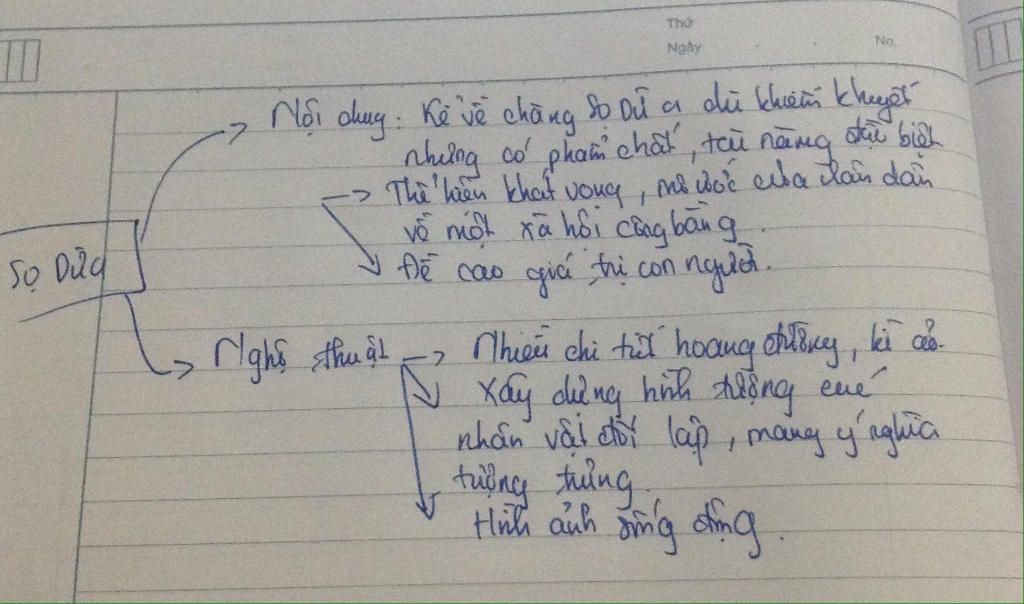 Thứ
Ngày
No.
Nội dung: Kể về chàng Sọ Dừa dù khiếm khuyết
nhưng có phẩm chất, tài năng đặc biệt
→ Thể hiện khát vọng, mơ ước của nhân dân
về một xã hội công bằng.
Đề cao giá trị con người.
Sọ Dừa
Nghệ thuật → Nhiều chi tiết hoang đường, kì ảo.
Xây dựng hình tượng các
nhân vật đối lập, mang ý nghĩa
tượng trưng.
Hình ảnh sống động.